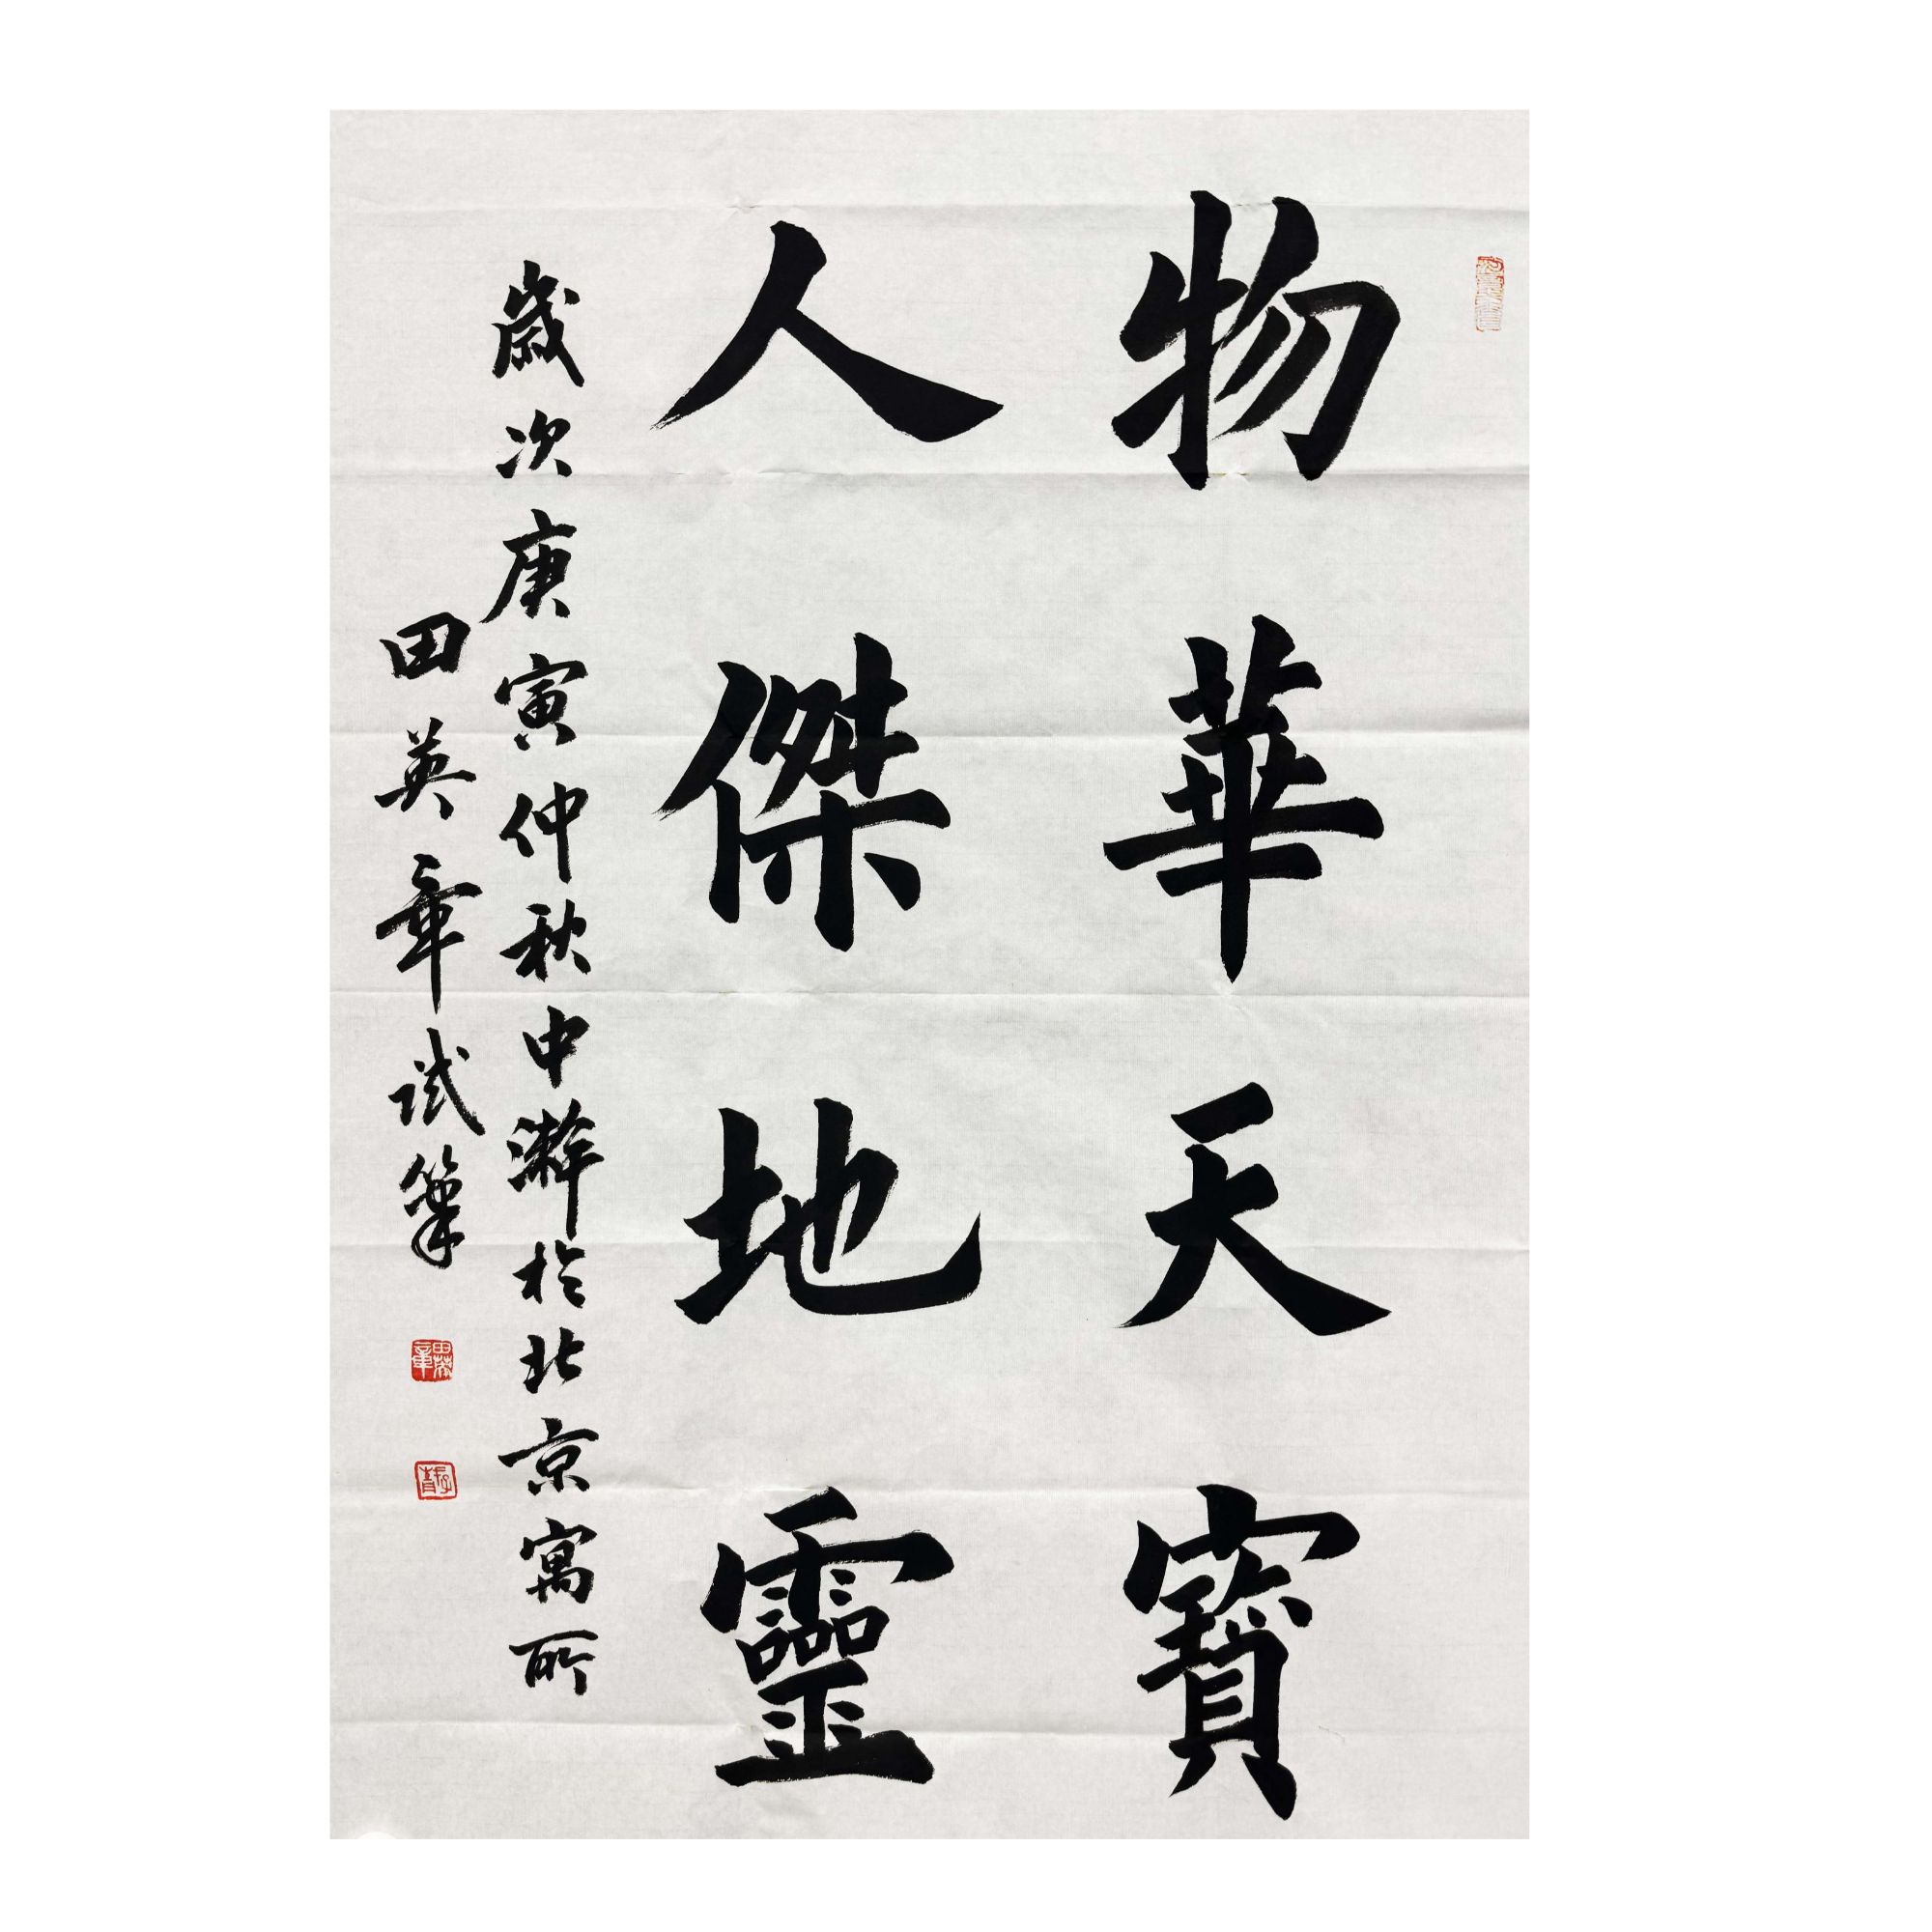 物華天寶
人傑地靈
歲次庚寅仲秋中澣於北京寓所
田英章試筆
田英章